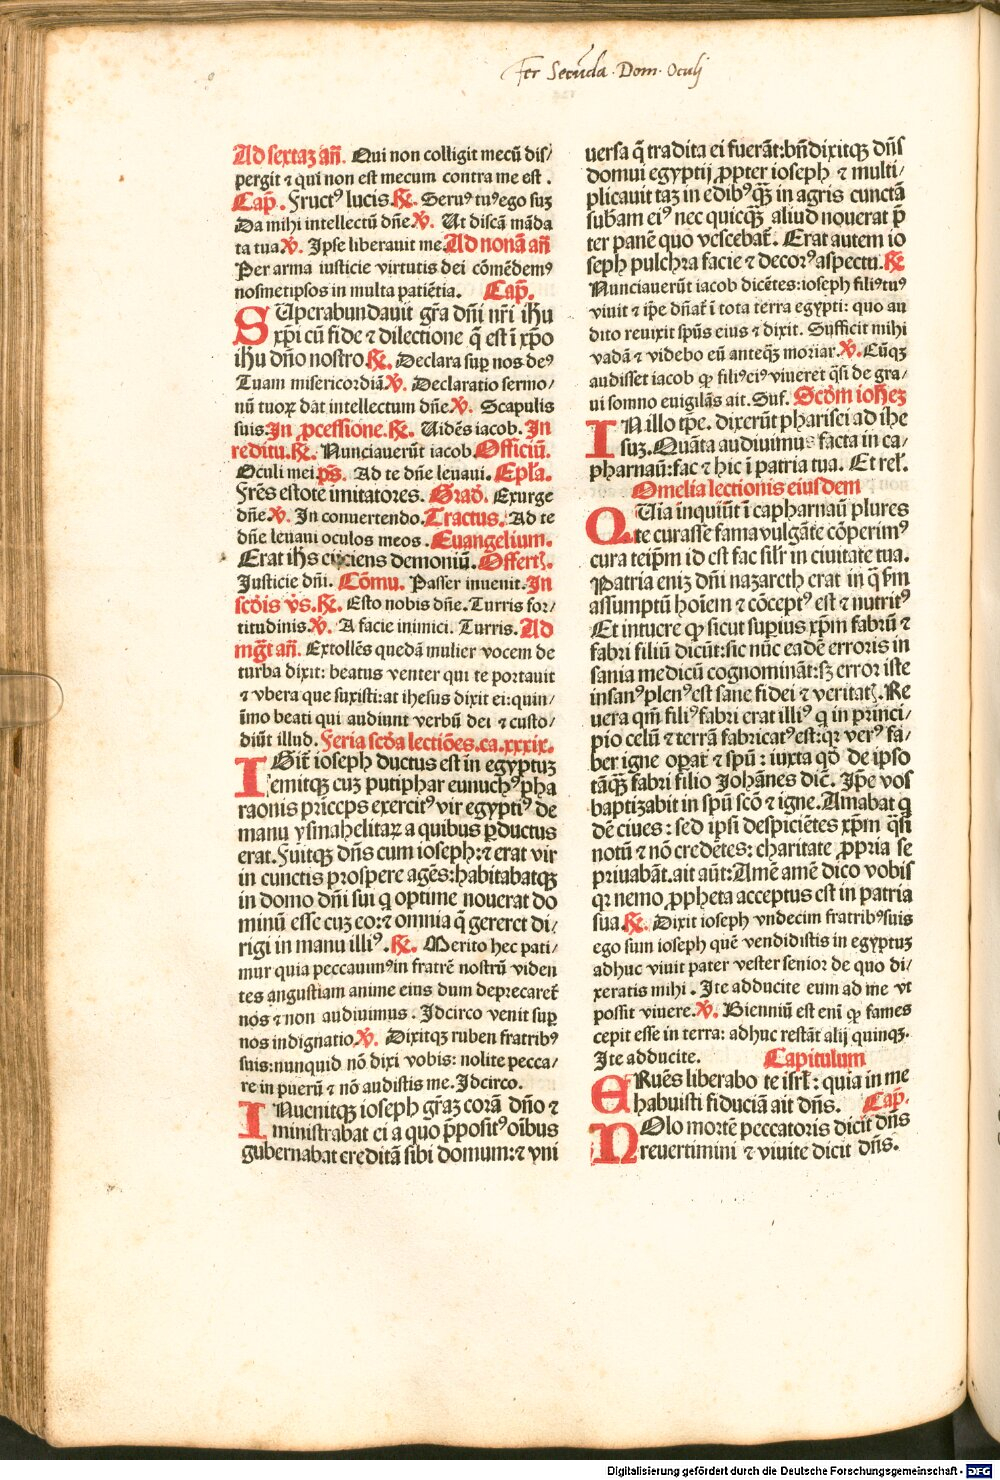 Fer Secūda. Dom. Oculj
Ad sextaꝫ añ. Qui non colligit mecū dis/
pergit ⁊ qui non est mecum contra me est.
Cap̄. Fructꝰ lucis. ℟. Seruꝰ tuꝰ ego suꝫ
Da mihi intellectū dn̄e. ℣. Ut discā māda
ta tua. ℣. Ipse liberauit me. Ad nonā añ
Per arma iusticie virtutis dei cōmēdemꝰ
nosmetipsos in multa patiētia. Cap̄.
SUperabundauit gr̄a dn̄i nr̄i ih̄u
xp̄i cū fide ⁊ dilectione q̄ est ī xp̄o
ih̄u dn̄o nostro. ℟. Declara suꝑ nos deꝰ
Tuam misericordiā. ℣. Declaratio sermo/
nū tuoꝝ dāt intellectum dn̄e. ℣. Scapulis
suis. In ꝓcessione. ℟. Uidēs iacob. In
reditu. ℟. Nunciauerūt iacob. Officiū.
Oculi mei. p̄s. Ad te dn̄e leuaui. Epl̄a.
Fr̄es estote imitatores. Grad̄. Exurge
dn̄e. ℣. In conuertendo. Tractus. Ad te
dn̄e leuaui oculos meos. Euangelium.
Erat ih̄s eijciens demoniū. Offertꝭ.
Iusticie dn̄i. Cōmu. Passer inuenit. In
scd̄is v̄s. ℟. Esto nobis dn̄e. Turris for/
titudinis. ℣. A facie inimici. Turris. Ad
mg̅t añ. Extollēs quedā mulier vocem de
turba dixit: beatus venter qui te portauit
⁊ vbera que suxisti: at ihesus dixit ei: quin/
īmo beati qui audiunt verbū dei ⁊ custo/
diūt illud. Feria scd̄a lectiōes. ca. xxxix.
IGit̄ ioseph ductus est in egyptuꝫ
emitqꝫ cuꝫ putiphar eunuchꝰ pha
raonis prīceps exercitꝰ vir egyptiꝰ de
manu ysmahelitaꝝ a quibus ꝑductus
erat. Fuitqꝫ dn̄s cum ioseph: ⁊ erat vir
in cunctis prospere agēs: habitabatqꝫ
in domo dn̄i sui q optime nouerat do
minū esse cuꝫ eo: ⁊ omnia q̄ gereret di/
rigi in manu illiꝰ. ℟. Merito hec pati/
mur quia peccauimꝰ in fratrē nostrū viden
tes angustiam anime eius dum deprecaret̄
nos ⁊ non audiuimus. Idcirco venit suꝑ
nos indignatio. ℣. Dixitqꝫ ruben fratribꝰ
suis: nunquid nō dixi vobis: nolite pecca/
re in puerū ⁊ nō audistis me. Idcirco.
INuenitqꝫ ioseph gr̄aꝫ corā dn̄o ⁊
ministrabat ei a quo p̄positꝰ oībus
gubernabat creditā sibi domum: ⁊ vni
uersa q̄ tradita ei fuerāt: bn̄dixitqꝫ dn̄s
domui egyptij ꝓpter ioseph ⁊ multi/
plicauit taꝫ in edibꝰ qꝫ̄ in agris cunctā
sub̄am eiꝰ nec quicqꝫ̄ aliud nouerat p̄
ter panē quo vescebat̄. Erat autem io
seph pulchra facie ⁊ decorꝰ aspectu. ℟
Nunciauerūt iacob dicētes: ioseph filiꝰ tuꝰ
viuit ⁊ ip̄e dn̄at̄ ī tota terra egypti: quo au
dito reuixit sp̄us eius ⁊ dixit. Sufficit mihi
vadā ⁊ videbo eū anteqꝫ̄ moriar. ℣. Cūqꝫ
audisset iacob ꝙ filiꝰ eiꝰ viueret q̄si de gra/
ui somno euigilās ait. Suf. Scd̄m ioh̄eꝫ
IN illo tp̄e. dixerūt pharisei ad ihe
suꝫ. Quāta audiuimus facta in ca/
pharnaū: fac ⁊ hic ī patria tua. Et rel̄.
Omelia lectionis eiusdem
QUia inquiūt ī capharnaū plures
te curasse fama vulgāte cōperimꝰ
cura teip̄m id est fac sil̄r in ciuitate tua.
Patria eniꝫ dn̄i nazareth erat in q̄ s̄m
assumptū hoīem ⁊ cōceptꝰ est ⁊ nutritꝰ
Et intuere ꝙ sicut suꝑius xp̄m fabrū ⁊
fabri filiū dicūt: sic nūc eadē erroris in
sania medicū cognomināt: sꝫ error iste
insanꝰ plenꝰ est sane fidei ⁊ veritatꝭ. Re
uera qm̄ filiꝰ fabri erat illiꝰ q in princi/
pio celū ⁊ terrā fabricatꝰ est: qꝛ verꝰ fa/
ber igne oꝑat̄ ⁊ sp̄u: iuxta qd̄ de ipso
tāqꝫ̄ fabri filio Iohānes dic̄. Ip̄e vos
baptizabit in sp̄u scō ⁊ igne. Amabat q
dē ciues: sed ipsi despiciētes xp̄m q̄si
notū ⁊ nō credētes: charitate ꝓpria se
priuabāt. ait aūt: Amē amē dico vobis
qꝛ nemo ꝓpheta acceptus est in patria
sua. ℟. Dixit ioseph vndecim fratribꝰ suis
ego sum ioseph quē vendidistis in egyptuꝫ
adhuc viuit pater vester senior de quo di/
xeratis mihi. Ite adducite eum ad me vt
possit viuere. ℣. Bienniū est enī ꝙ fames
cepit esse in terra: adhuc restāt alij quinqꝫ.
Ite adducite. Capitulum
ERuēs liberabo te isrl̄: quia in me
habuisti fiduciā ait dn̄s. Cap̄.
NOlo mortē peccatoris dicit dn̄s
reuertimini ⁊ viuite dicit dn̄s.
Digitalisierung gefördert durch die Deutsche Forschungsgemeinschaft - DFG